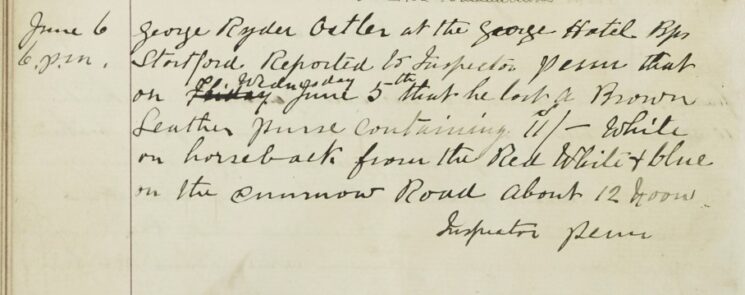 June 6 George Ryder Ostler at the George Hotel Bps
6.p.m. Stortford Reported to Inspector Penn that
on Friday Wednesday June 5th that he lost a Brown
Leather purse containing 11/- White
on horseback from the Red White & blue
on the Dunmow Road about 12 Noon.
Inspector Penn